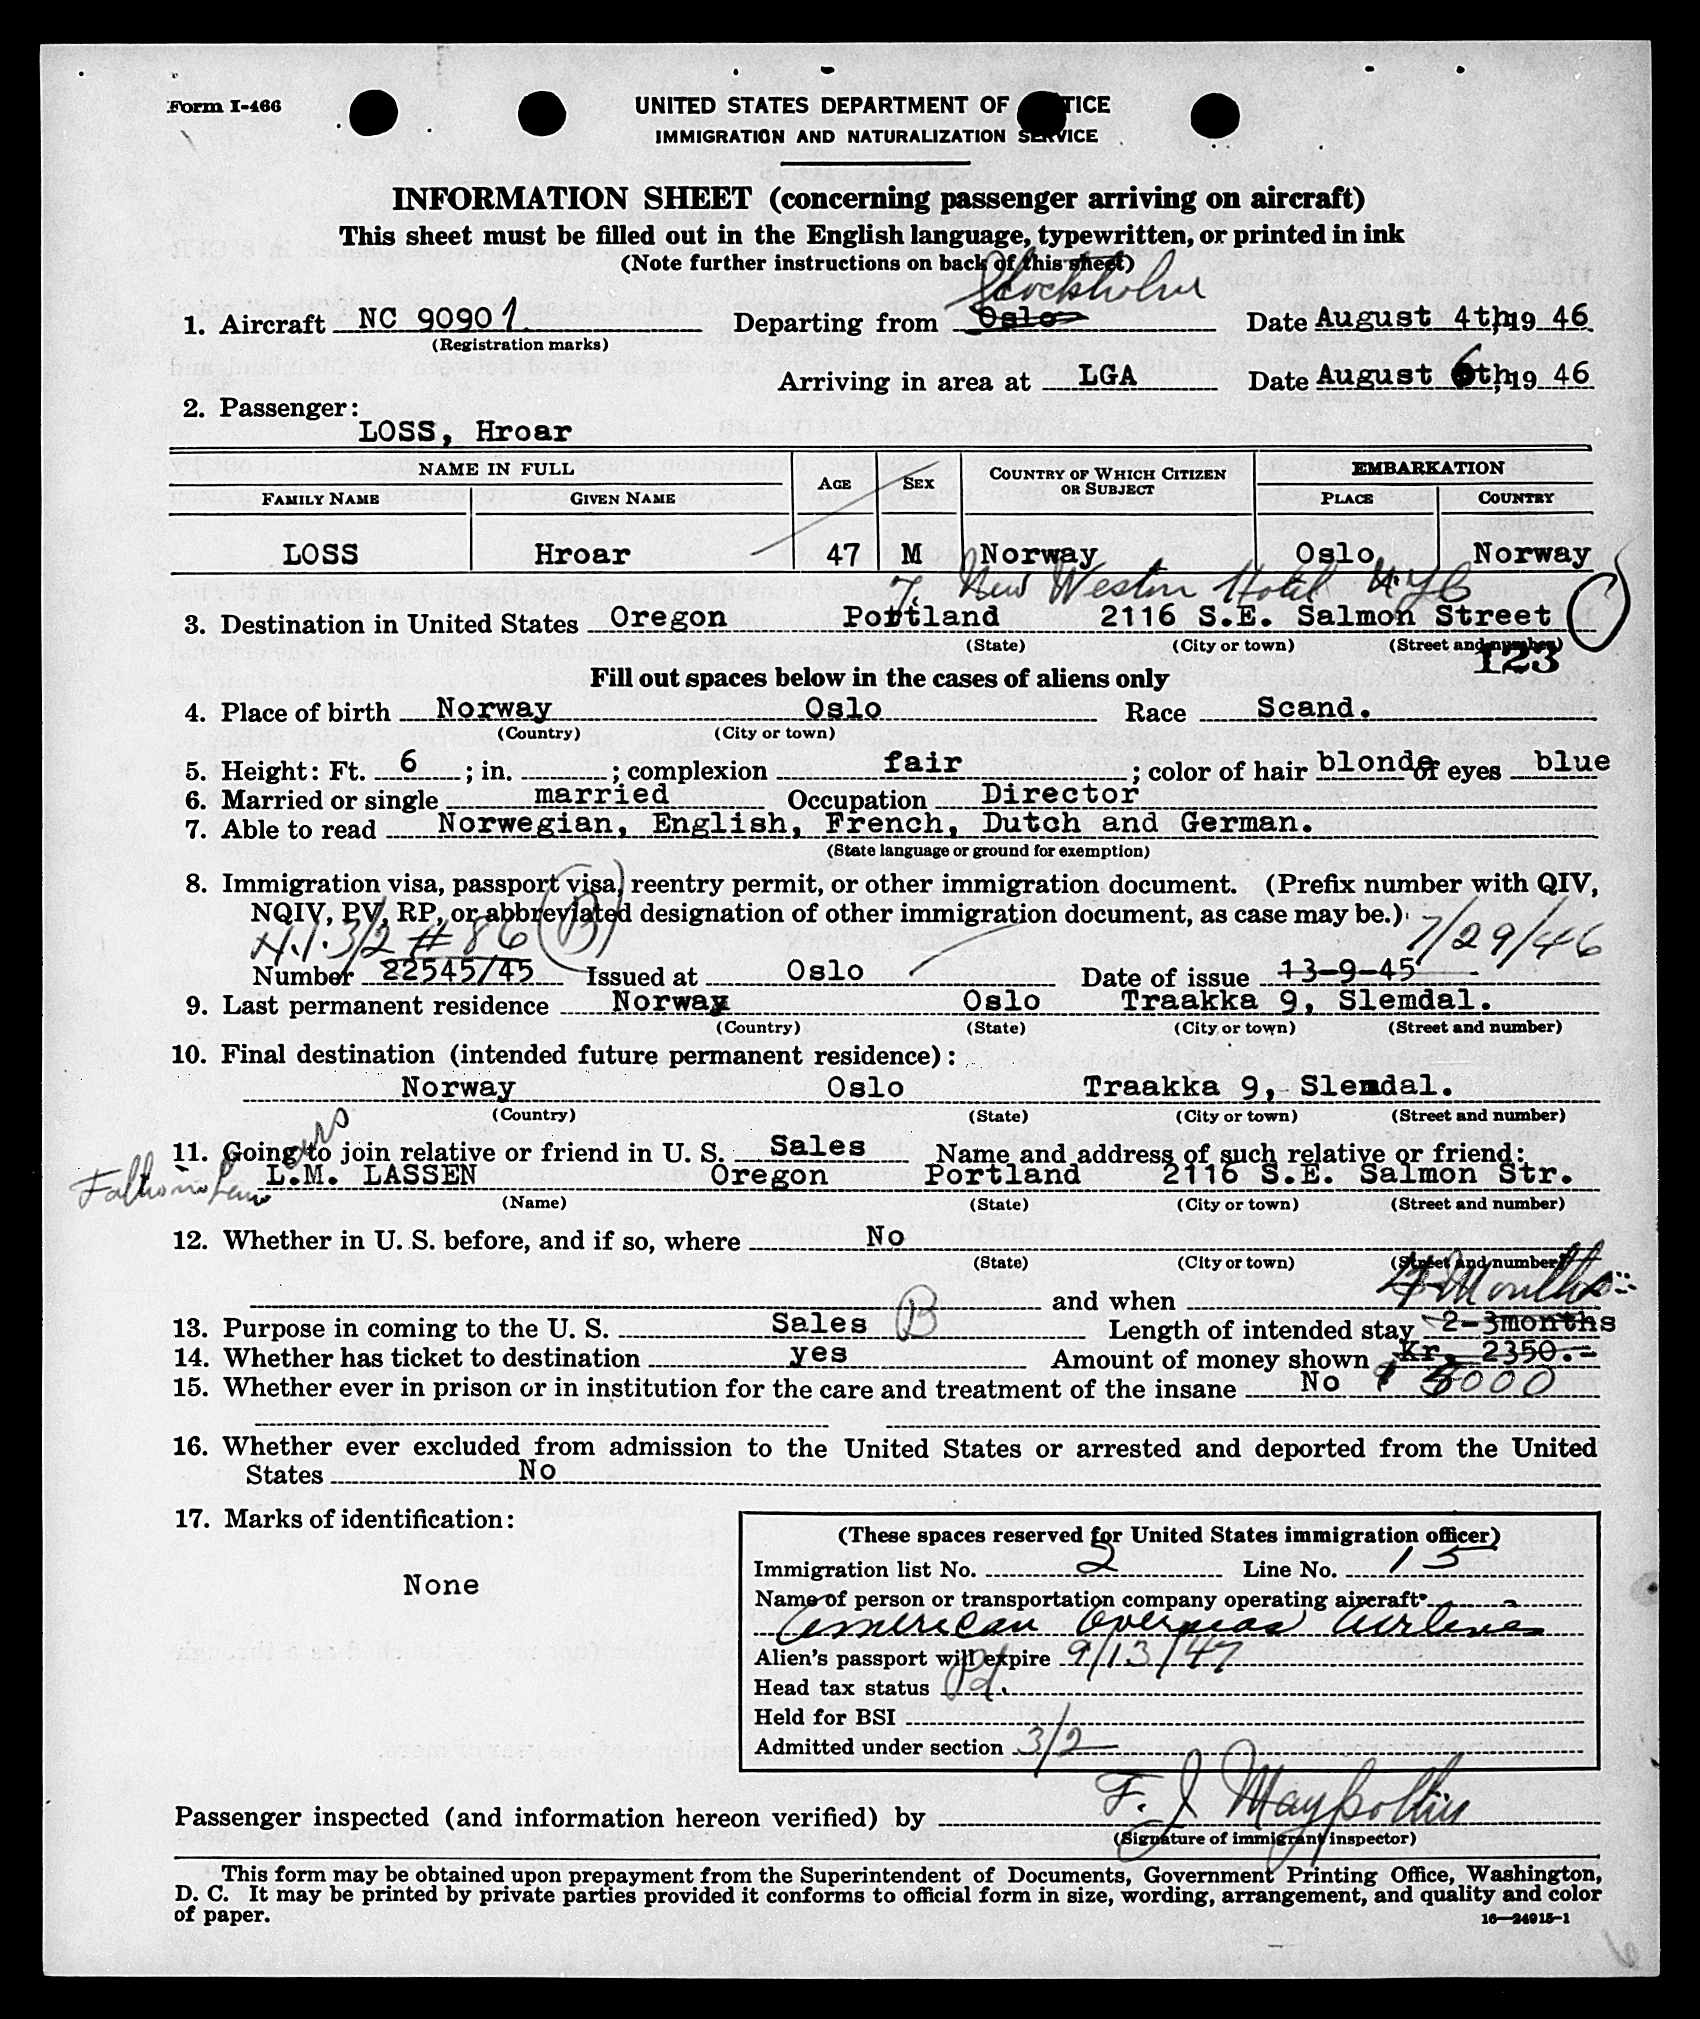 Form I-466
UNITED STATES DEPARTMENT OF TICE
IMMIGRATION AND NATURALIZATION SERVICE
INFORMATION SHEET (concerning passenger arriving on aircraft)
This sheet must be filled out in the English language, typewritten, or printed in ink
(Note further instructions on back of this sheet)
Stockholm
1. Aircraft NC 90907 Departing from Oslo Date August 4th, 19 46
(Registration marks)
Arriving in area at LGA Date August 6th, 19 46
2. Passenger:
LOSS, Hroar
NAME IN FULL AGE SEX COUNTRY OF WHICH CITIZEN OR SUBJECT EMBARKATION
FAMILY NAME GIVEN NAME PLACE COUNTRY
LOSS Hroar 47 M Norway Oslo Norway
New Weston Hotel NYC
3. Destination in United States Oregon Portland 2116 S.E. Salmon Street
(State) (City or town) (Street and number)
123
Fill out spaces below in the cases of aliens only
4. Place of birth Norway Oslo Race Scand.
(Country) (City or town)
5. Height: Ft. 6 ; in. ; complexion fair ; color of hair blonde of eyes blue
6. Married or single married Occupation Director
7. Able to read Norwegian, English, French, Dutch and German.
(State language or ground for exemption)
8. Immigration visa, passport visa, reentry permit, or other immigration document. (Prefix number with QIV,
NQIV, PV, RP, or abbreviated designation of other immigration document, as case may be.)
3/2 # 86 B 7/29/46
Number 22545/45 Issued at Oslo Date of issue 13-9-45
9. Last permanent residence Norway Oslo Traakka 9, Slemdal.
(Country) (State) (City or town) (Street and number)
10. Final destination (intended future permanent residence):
Norway Oslo Traakka 9, Slemdal.
(Country) (State) (City or town) (Street and number)
11. Going to join relative or friend in U. S. Sales Name and address of such relative or friend:
L.M. LASSEN Oregon Portland 2116 S.E. Salmon Str.
(Name) (State) (City or town) (Street and number)
12. Whether in U. S. before, and if so, where No
(State) (City or town) (Street and number)
Months
and when
13. Purpose in coming to the U. S. Sales B Length of intended stay 2-3months
14. Whether has ticket to destination yes Amount of money shown Kr. 2350.-
15. Whether ever in prison or in institution for the care and treatment of the insane No 5000
16. Whether ever excluded from admission to the United States or arrested and deported from the United
States No
17. Marks of identification:
None
(These spaces reserved for United States immigration officer)
Immigration list No. 2 Line No. 15
Name of person or transportation company operating aircraft
American Overseas Airlines
Alien's passport will expire 9/13/47
Head tax status Pd.
Held for BSI
Admitted under section 3/2
Passenger inspected (and information hereon verified) by F. J
(Signature of immigrant inspector)
This form may be obtained upon prepayment from the Superintendent of Documents, Government Printing Office, Washington,
D. C. It may be printed by private parties provided it conforms to official form in size, wording, arrangement, and quality and color
of paper.
16—24915-1
6